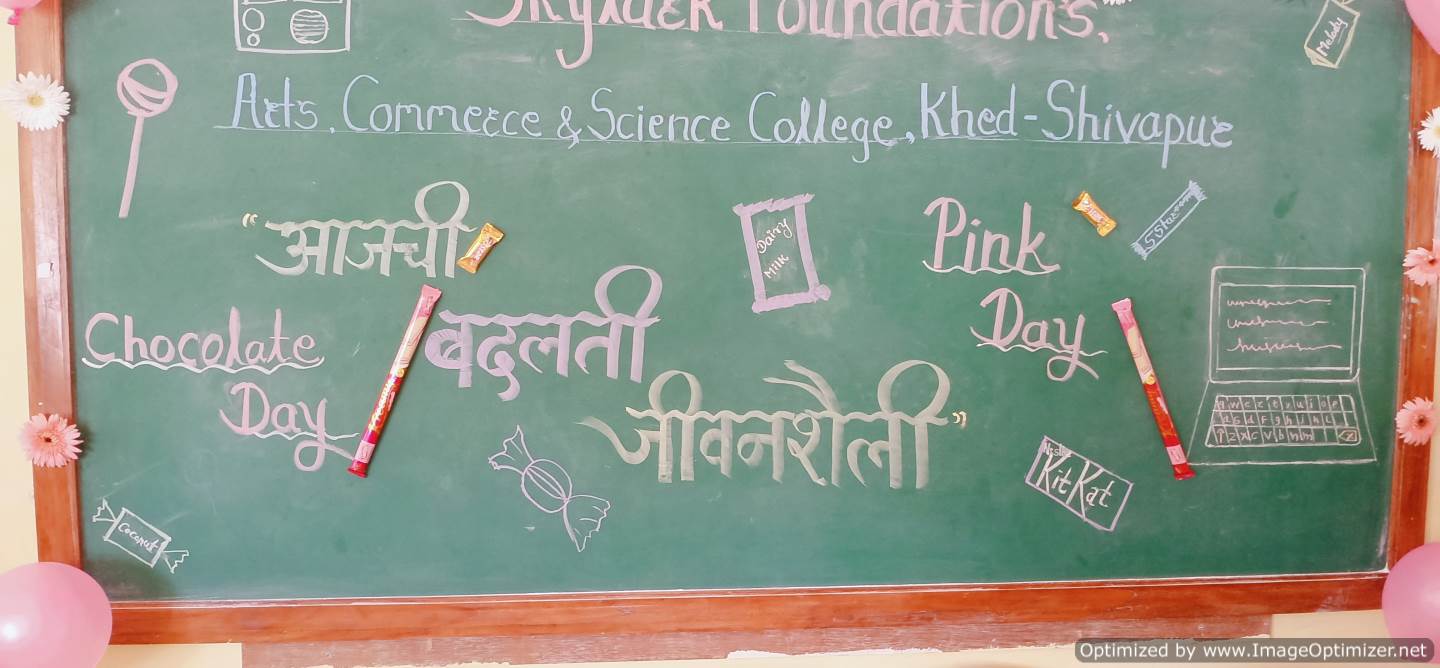 Foundation's,
Melody
Arts, Commerce & Science College, Khed-Shivapur
"आजची
बदलती
जीवनशैली"
Chocolate
Day
Pink
Day
Dairy
Milk
5 Star
Nestle
KitKat
Coconut
Optimized by www.ImageOptimizer.net